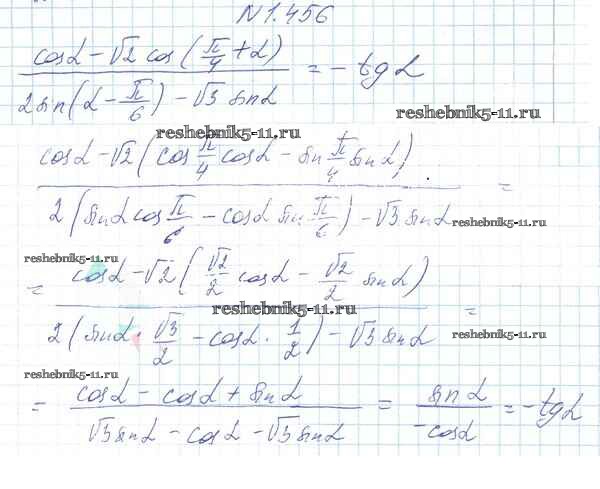 N 1.456
(cosα - √2 cos(π/4 + α)) / (2 sin(α - π/6) - √3 sinα) = - tgα
reshebnik5-11.ru
reshebnik5-11.ru
(cosα - √2 (cos π/4 cosα - sin π/4 sinα)) / (2 (sinα cos π/6 - cosα sin π/6) - √3 sinα) =
reshebnik5-11.ru
reshebnik5-11.ru
= (cosα - √2 (√2/2 cosα - √2/2 sinα)) / (2 (sinα · √3/2 - cosα · 1/2) - √3 sinα) =
reshebnik5-11.ru
reshebnik5-11.ru
reshebnik5-11.ru
= (cosα - cosα + sinα) / (√3 sinα - cosα - √3 sinα) = sinα / -cosα = - tgα